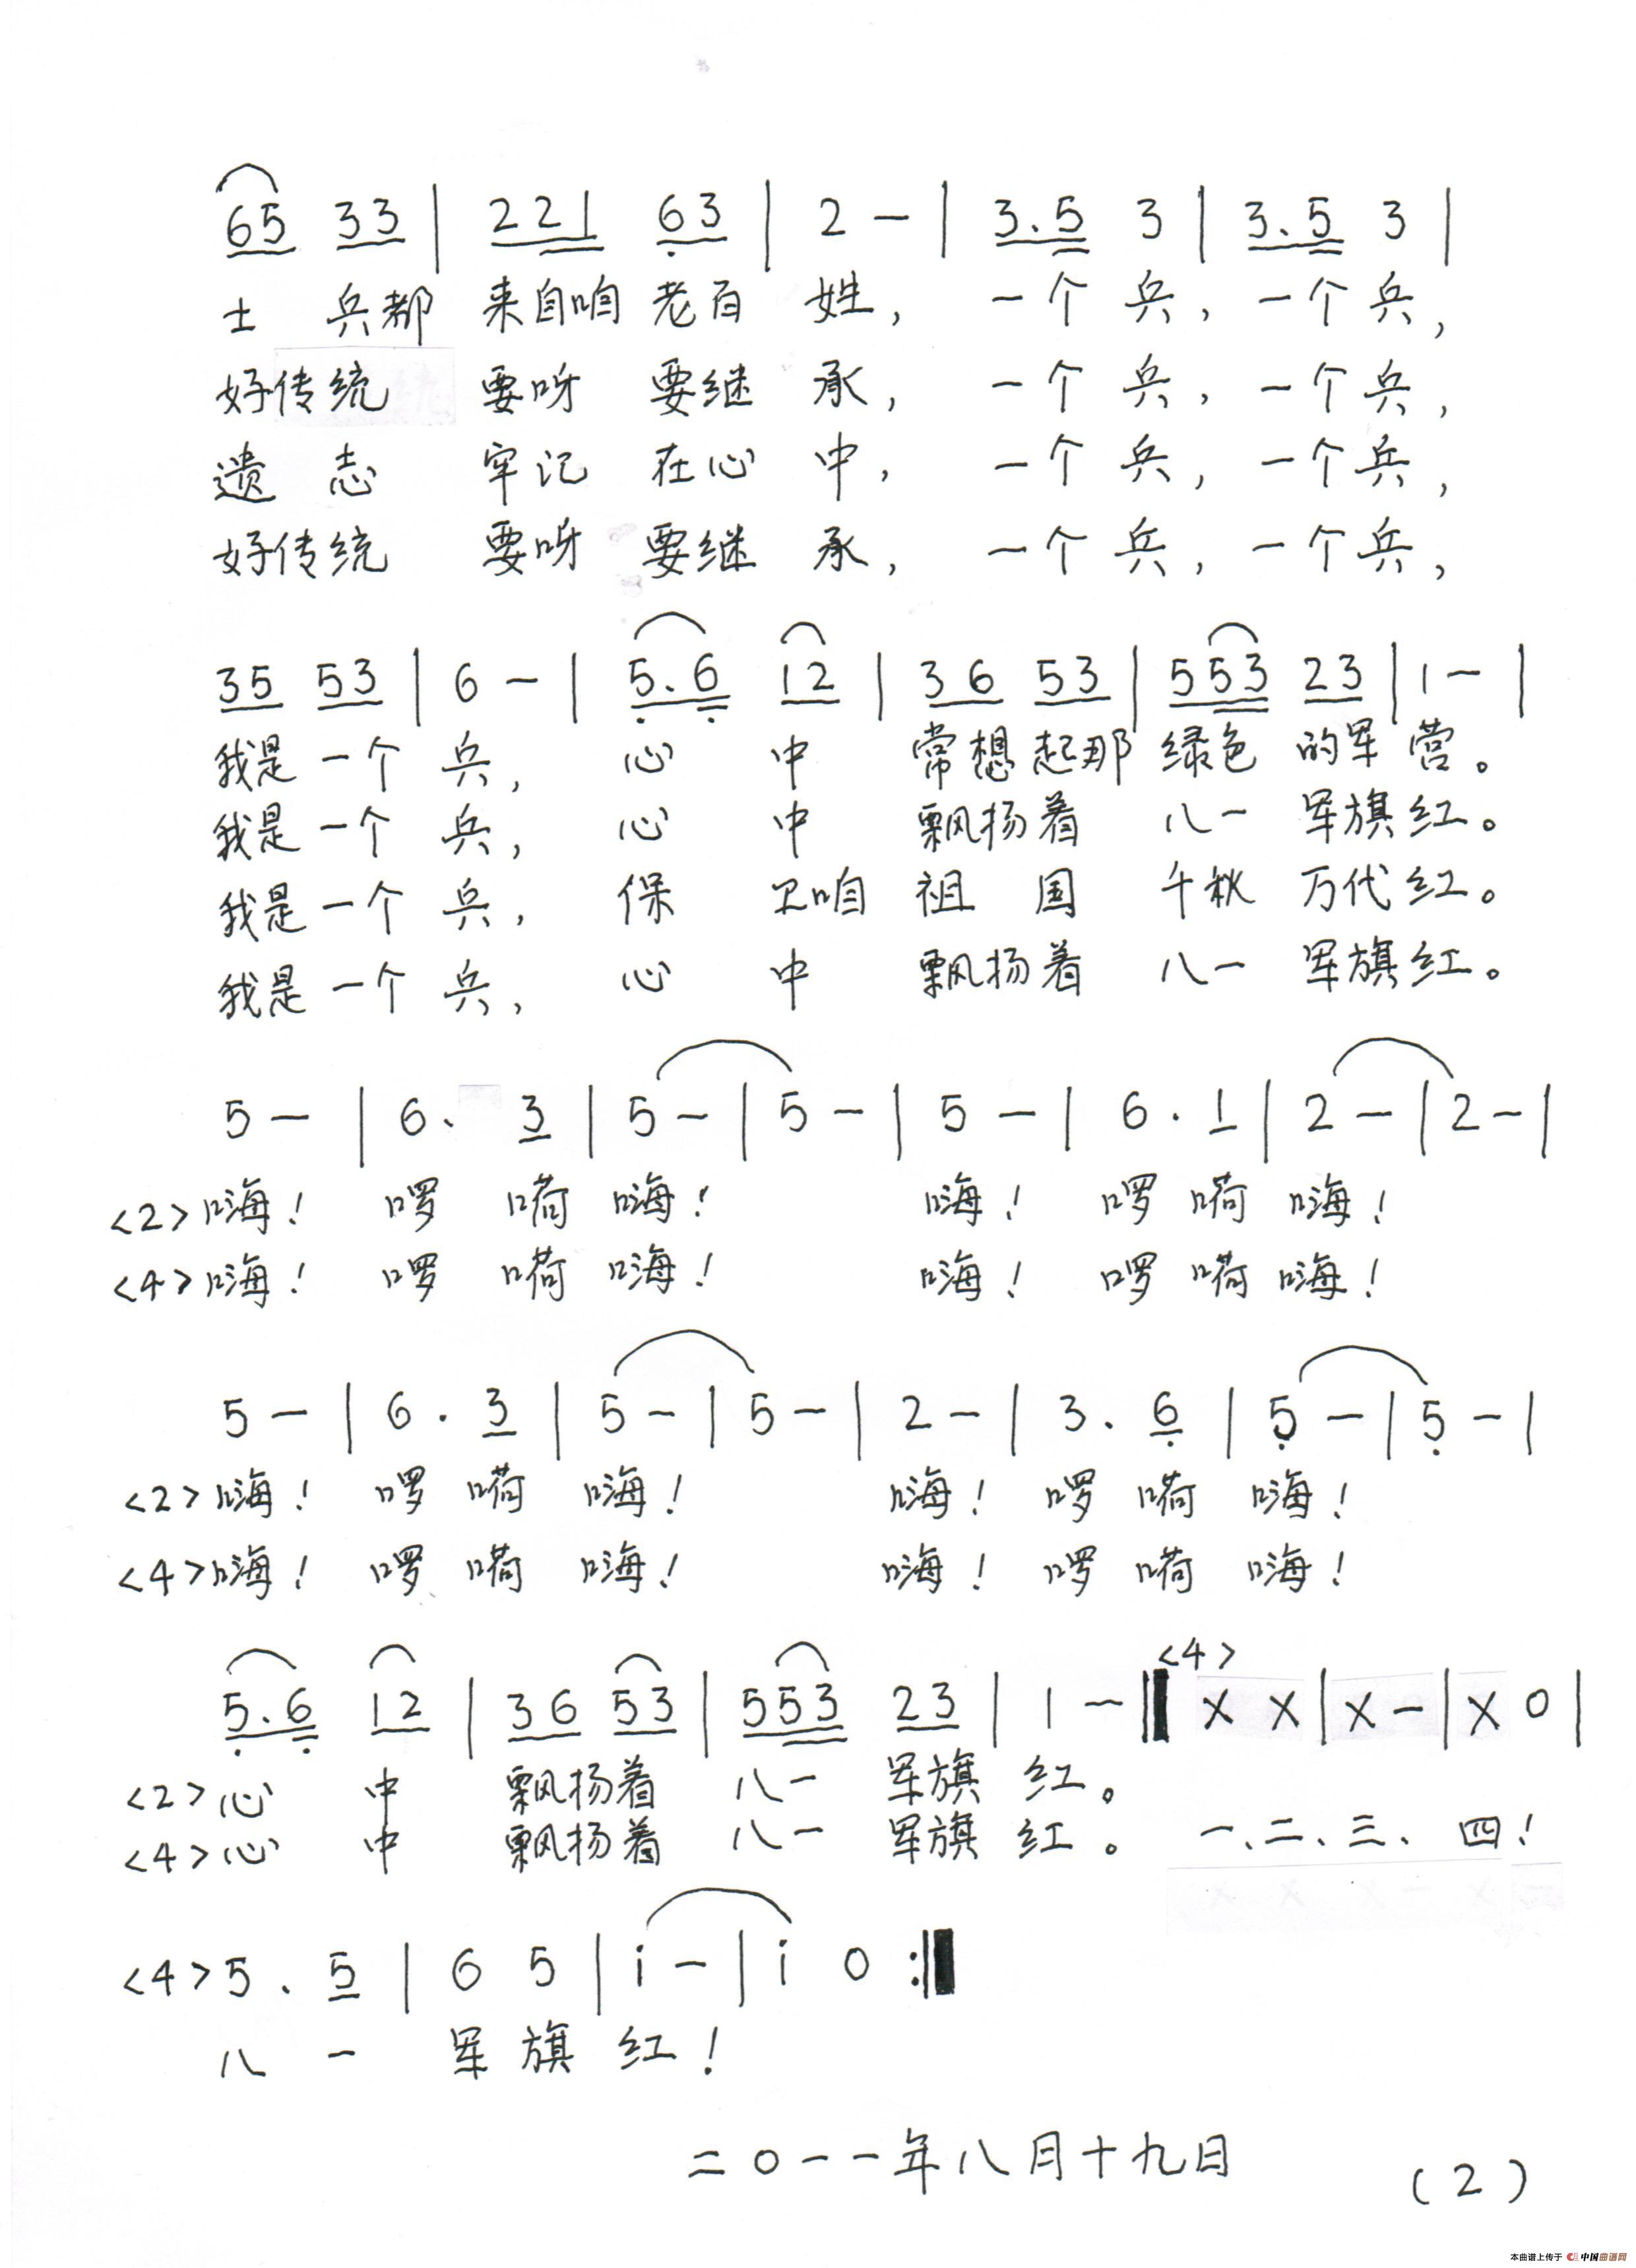 65 33 | 221 63 | 2 － | 3.5 3 | 3.5 3 |
士 兵都 来自咱 老百 姓， 一个 兵，一个 兵，
好传统 要呀 要继 承， 一个 兵，一个 兵，
遗 志 牢记 在心 中， 一个 兵，一个 兵，
好传统 要呀 要继 承， 一个 兵，一个 兵，
35 53 | 6 － | 5.6 12 | 36 53 | 553 23 | 1 － |
我是 一个 兵， 心 中 常想 起那 绿色 的军 营。
我是 一个 兵， 心 中 飘扬着 八一 军旗 红。
我是 一个 兵， 保 卫咱 祖 国 千秋 万代 红。
我是 一个 兵， 心 中 飘扬着 八一 军旗 红。
5 － | 6. 3 | 5 － | 5 － | 5 － | 6. 1 | 2 － | 2 － |
<2>嗨！ 啰 嗬 嗨！ 嗨！ 啰 嗬 嗨！
<4>嗨！ 啰 嗬 嗨！ 嗨！ 啰 嗬 嗨！
5 － | 6. 3 | 5 － | 5 － | 2 － | 3. 6 | 5 － | 5 － |
<2>嗨！ 啰 嗬 嗨！ 嗨！ 啰 嗬 嗨！
<4>嗨！ 啰 嗬 嗨！ 嗨！ 啰 嗬 嗨！
<4>
5.6 12 | 36 53 | 553 23 | 1 － ‖ X X | X － | X 0 |
<2>心 中 飘扬着 八一 军旗 红。
<4>心 中 飘扬着 八一 军旗 红。 一、二、三、四！
<4>5. 5 | 6 5 | i － | i 0 :‖
八 一 军 旗 红！
二〇一一年八月十九日
(2)
本曲谱上传于 中国曲谱网